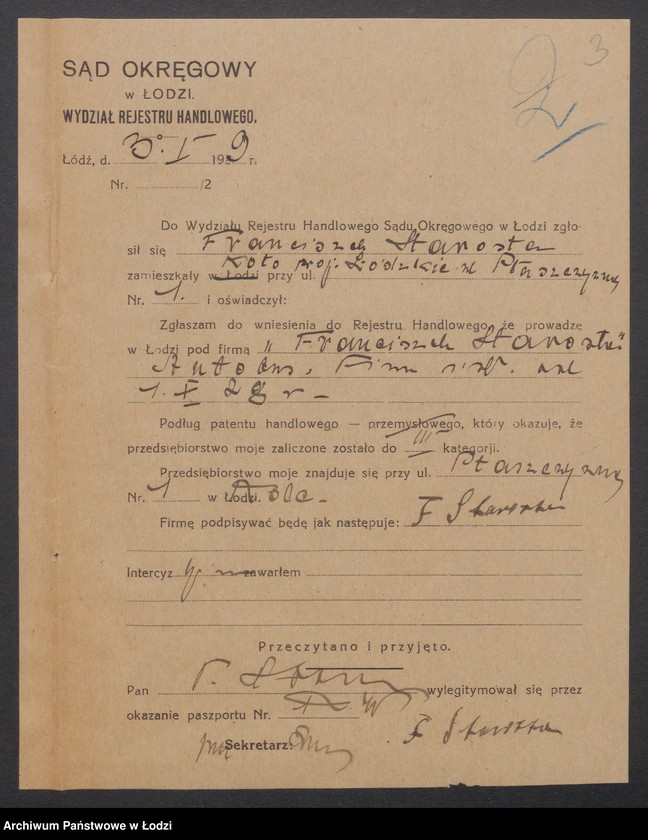 3
2
SĄD OKRĘGOWY
w ŁODZI.
WYDZIAŁ REJESTRU HANDLOWEGO.
Łódź, d. 3o. I 1929 r.
Nr. /2
Do Wydziału Rejestru Handlowego Sądu Okręgowego w Łodzi zgło-
sił się Franciszek Starosta
zamieszkały w Łodzi Koło woj. Łódzkie przy ul.
Nr. 1. i oświadczył:
Zgłaszam do wniesienia do Rejestru Handlowego, że prowadzę
w Łodzi pod firmą „Franciszek Starosta"
Autobus. Firma od
1. X 28 r -
Podług patentu handlowego — przemysłowego, który okazuje, że
przedsiębiorstwo moje zaliczone zostało do III kategorji.
Przedsiębiorstwo moje znajduje się przy ul.
Nr. 1 w Łodzi.
Firmę podpisywać będę jak następuje: F Starosta
Intercyz nie zawarłem
Przeczytano i przyjęto.
Pan F. Starosta wylegitymował się przez
okazanie paszportu Nr.
F Starosta
Sekretarz:
Archiwum Państwowe w Łodzi